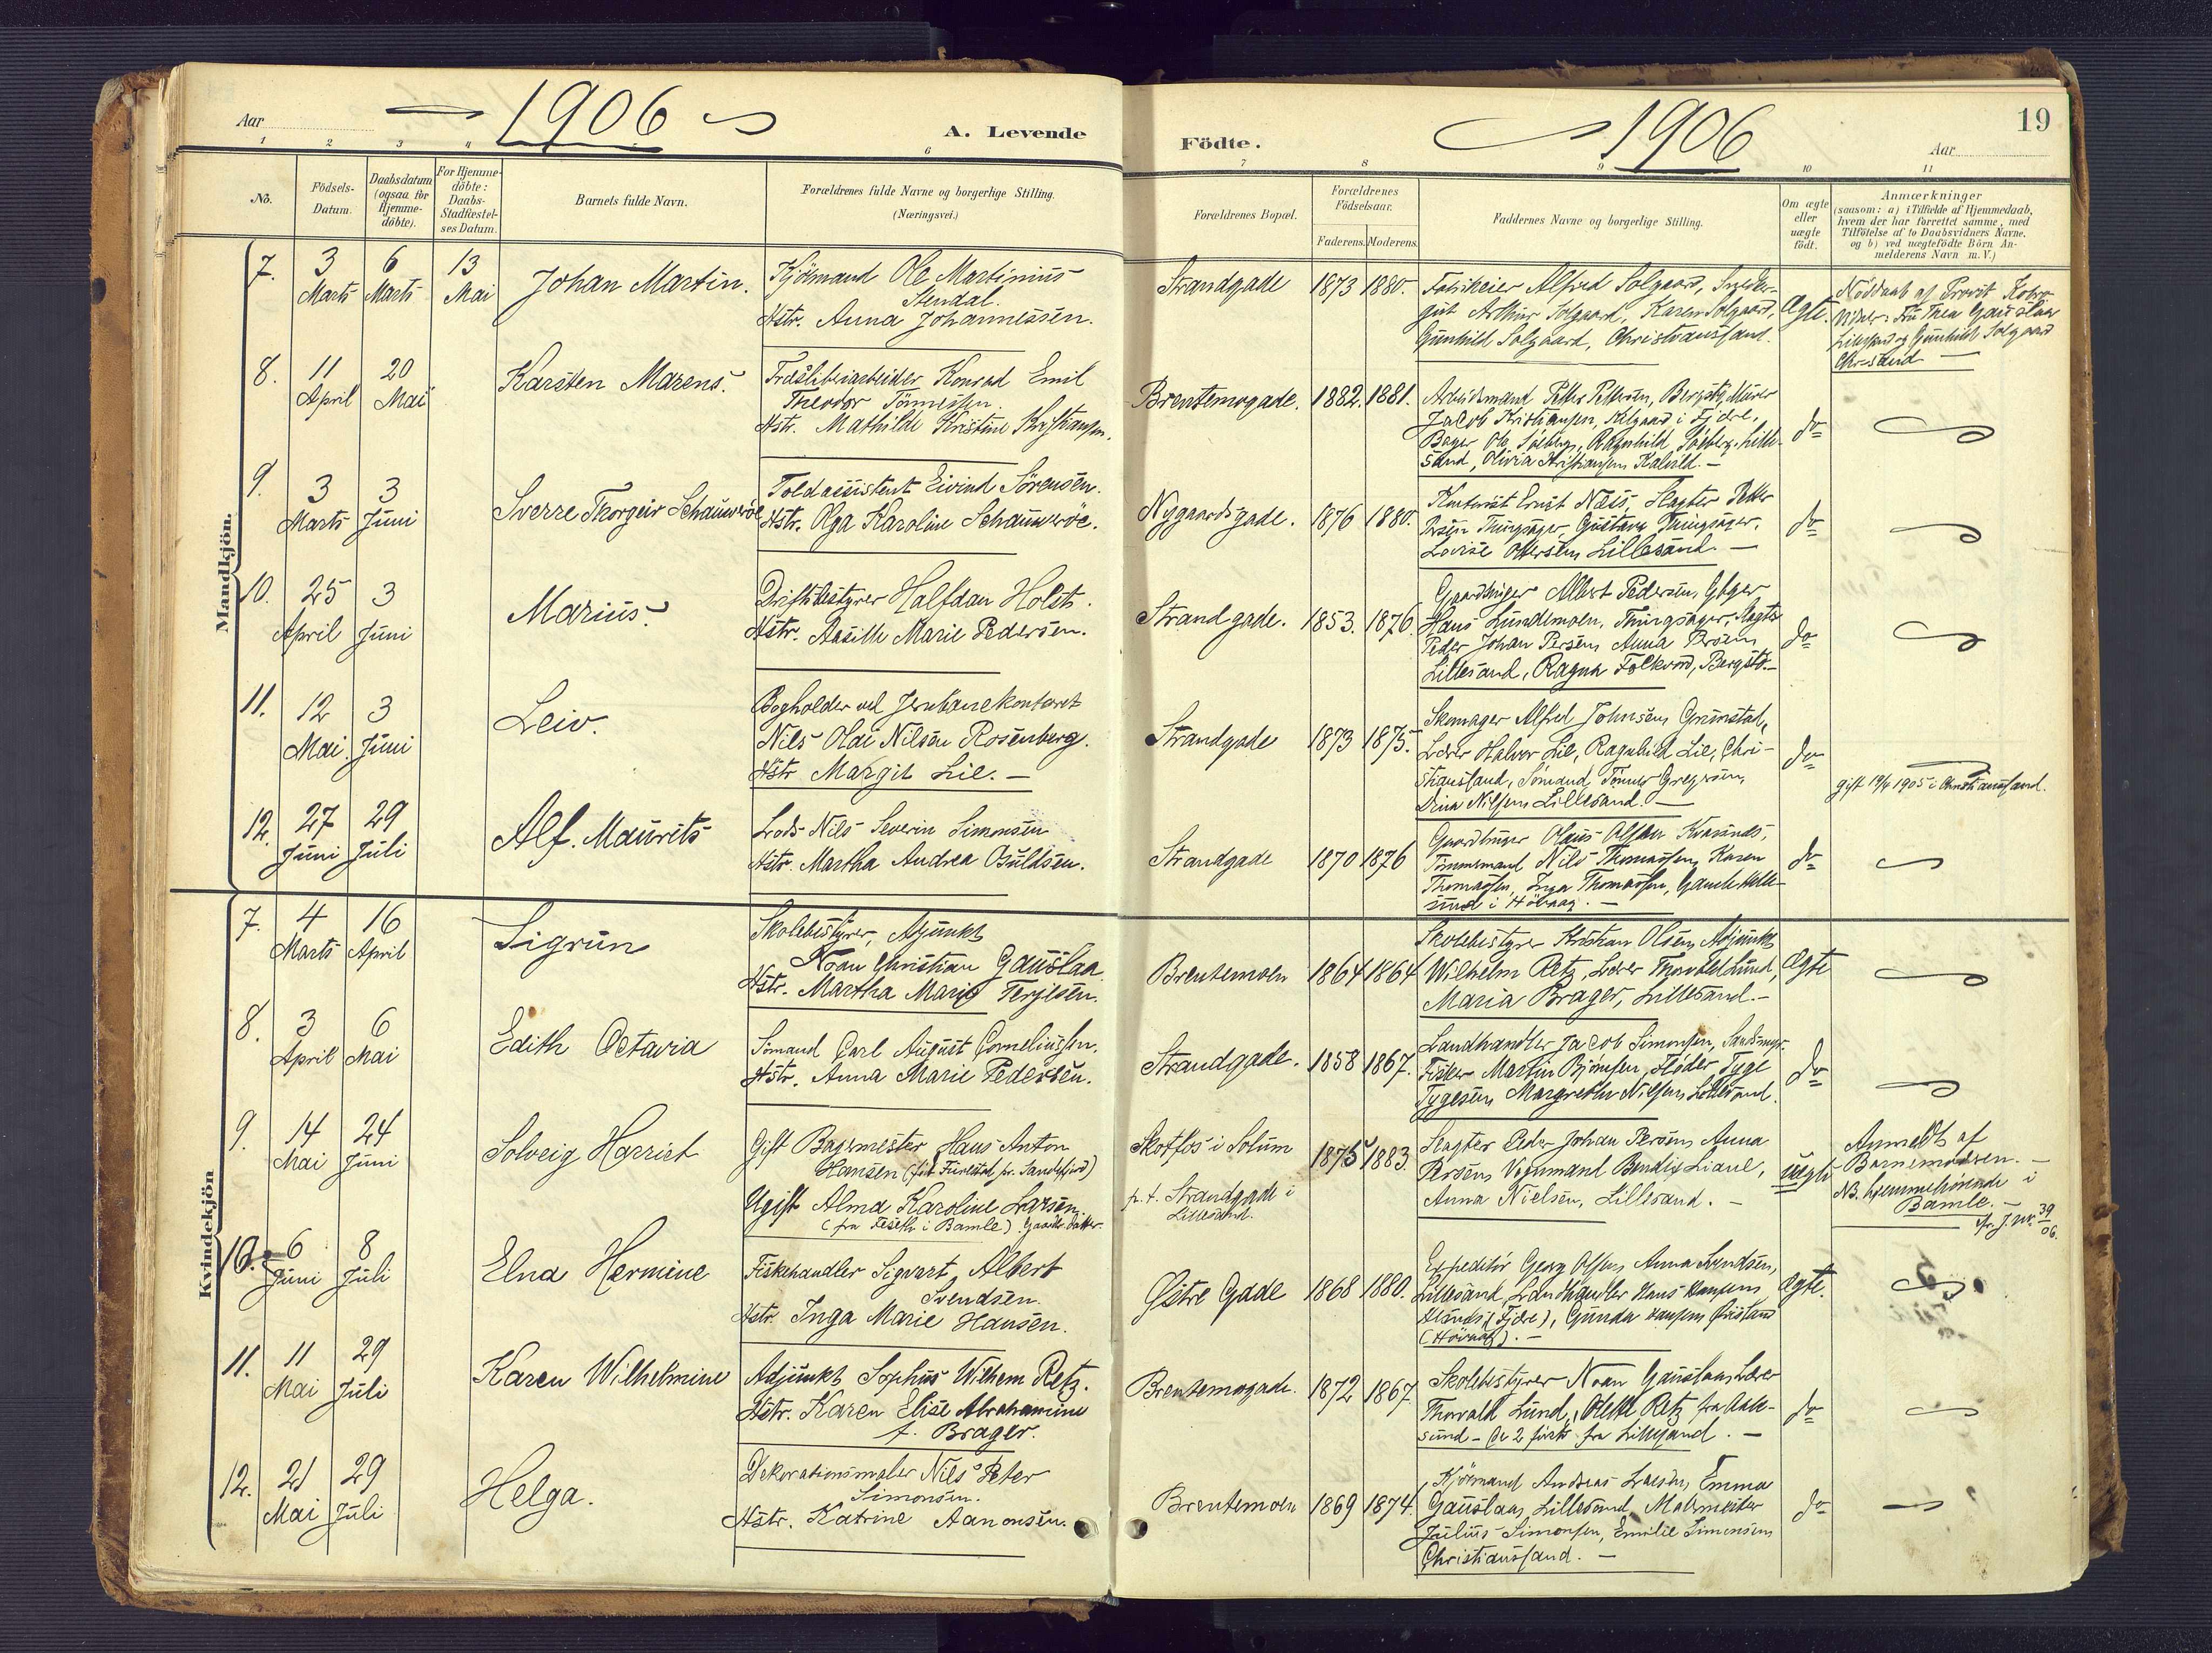 Aar 1906 A. Levende
Födte. 1906 Aar 19
1 2 3 4 6
7 8 9 10 11
No.
Födsels-Datum.
Daabsdatum (ogsaa for Hjemme-döbte).
For Hjemme-döbte: Daabs-Stadfæstel-ses Datum.
Barnets fulde Navn.
Forældrenes fulde Navne og borgerlige Stilling.
(Næringsvei.)
Forældrenes Bopæl.
Forældrenes Födselsaar.
Faderens. Moderens.
Faddernes Navne og borgerlige Stilling.
Om ægte eller uægte födt.
Anmærkninger
(saasom: a) i Tilfælde af Hjemmedaab,
hvem der har forrettet samme, med
Tilföielse af to Daabsvidners Navne,
og b) ved uægtefödte Börn An-
melderens Navn m. V.)
Mandkjön.
7. 3 Marts 6 Marts 13 Mai
Johan Martin.
Kjörmand Ole Martinius
Stendal.
Hstr. Anna Johannessen.
Strandgade 1873 1880.
Alfred Solgaard,
Arthur Solgaard, Karen Solgaard,
Gunhild Solgaard, Christianssand.
Ægte.
Nöddaab af Provst
Fru Thea Gauslaa
Lillesand og Gunhild Solgaard
Chr-sand
8. 11 April 20 Mai
Karsten Marens.
Træsliberiarbeider Konrad Emil
Theodor Tönnessen.
Hstr. Mathilde Kristine Kristiansen.
Brentemogade. 1882. 1881.
Arbeidsmand Petter Pettersen, Murer
Jacob Kristiansen, i Fjære,
Bager Ole Solberg, Ragnhild Solberg, Lille-
sand, Olivia Kristiansen Kalvild. —
do
9. 3 Marts 3 Juni
Sverre Thorgeir Schauweröe
Toldassistent Eivind Sörensen.
Hstr. Olga Karoline Schauweröe.
Nygaardsgade. 1876 1880.
Kontorist Ernst Næss, Slagter Petter
Persen Thingsager, Gustava Thingsager,
Lovise Ottersen Lillesand. —
do
10. 25 April 3 Juni
Marius.
Driftsbestyrer Halfdan Holst.
Hstr. Aasille Marie Pedersen.
Strandgade. 1853. 1876.
Gaardbruger Albert Pedersen,
Hans Lundemoen, Thingsager, Slagter
Peder Johan Persen Anna Persen
Lillesand, Ragna Folkvord,
do
11. 12 Mai 3 Juni
Leiv.
Bogholder ved Jernbanekontoret
Nils Olai Nilsen Rosenberg.
Hstr. Margit Lie. —
Strandgade 1873 1875.
Skomager Alfred Johnsen, Grimstad,
Lærer Halvor Lie, Ragnhild Lie, Chri-
stianssand, Sömand Tönnes Gregersen,
Dina Nilsen Lillesand. —
do
gift 19/4 1905 i Christianssand.
12. 27 Juni 29 Juli
Alf. Maurits
Lods Nils Severin Simonsen
Hstr. Martha Andrea Osuldsen.
Strandgade 1870 1876
Gaardbruger Olaus Olsen
Tömmermand Nils Thomassen, Karen
Thomassen, Inga Thomassen, Gamle Helle-
sund i Hövaag. —
do
Kvindekjön
7. 4 Marts 16 April
Sigrun
Skolebestyrer, Adjunkt
Noan Christian Gauslaa
Hstr. Martha Marie Terjesen.
Brentemoen 1864 1864
Skolebestyrer Kristian Olsen, Adjunkt
Wilhelm Retz, Lærer Thorvald Lund,
Maria Brager, Lillesand. —
Ægte
8. 3 April 6 Mai
Edith Octavia
Sömand Carl August Corneliussen.
Hstr. Anna Marie Pedersen.
Strandgade. 1858 1867.
Landhandler Jacob Simonsen,
Fisker Martin Björnsen, Fløder Tyge
Tygesen, Margrethe Nilsen Lillesand.
do
9. 14 Mai 24 Juni
Solveig Harriet
Gift Bagermester Hans Anton
Hansen (fra Furestad pr. Sandefjord)
Ugift Alma Karoline Larsen.
(fra Feseth i Bamle) Gaardbr. Datter.
Skotfos i Solum
p. t. Strandgade i
Lillesand.
1875 1883.
Slagter Peder Johan Persen, Anna
Persen, Vognmand Bendix Liane,
Anna Nielsen, Lillesand. —
uægte
Anmeldt af
Barnemoderen. —
NB. hjemmehörende i
Bamle. —
J. Nr. 39/06.
10. 6 Juni 8 Juli
Elna Hermine
Fiskehandler Sigvart Albert
Svendsen.
Hstr. Inga Marie Hansen.
Østre Gade 1868 1880.
Expeditör Georg Olsen, Anna Svendsen,
Lillesand, Landhandler Hans Hansen
(Fjære), Gunda Hansen
(Hövaag). —
Ægte.
11. 11 Mai 29 Juli
Karen Wilhelmine
Adjunkt Sophus Wilhem Retz.
Hstr. Karen Elise Abrahamine
f. Brager.
Brentemogade. 1872 1867
Skolebestyrer Noan Gauslaa, Lærer
Thorvald Lund, Retz fra Aale-
sund — De 2 förste fra Lillesand. —
do
12. 21 Mai 29 Juli
Helga.
Dekorationsmaler Nils Peter
Simonsen.
Hstr. Katrine Aanonsen.
Brentemoen 1869 1874.
Kjörmand Andreas Larsen, Emma
Gauslaa, Lillesand, Malermester
Julius Simonsen, Emilie Simonsen
Christianssand. —
do